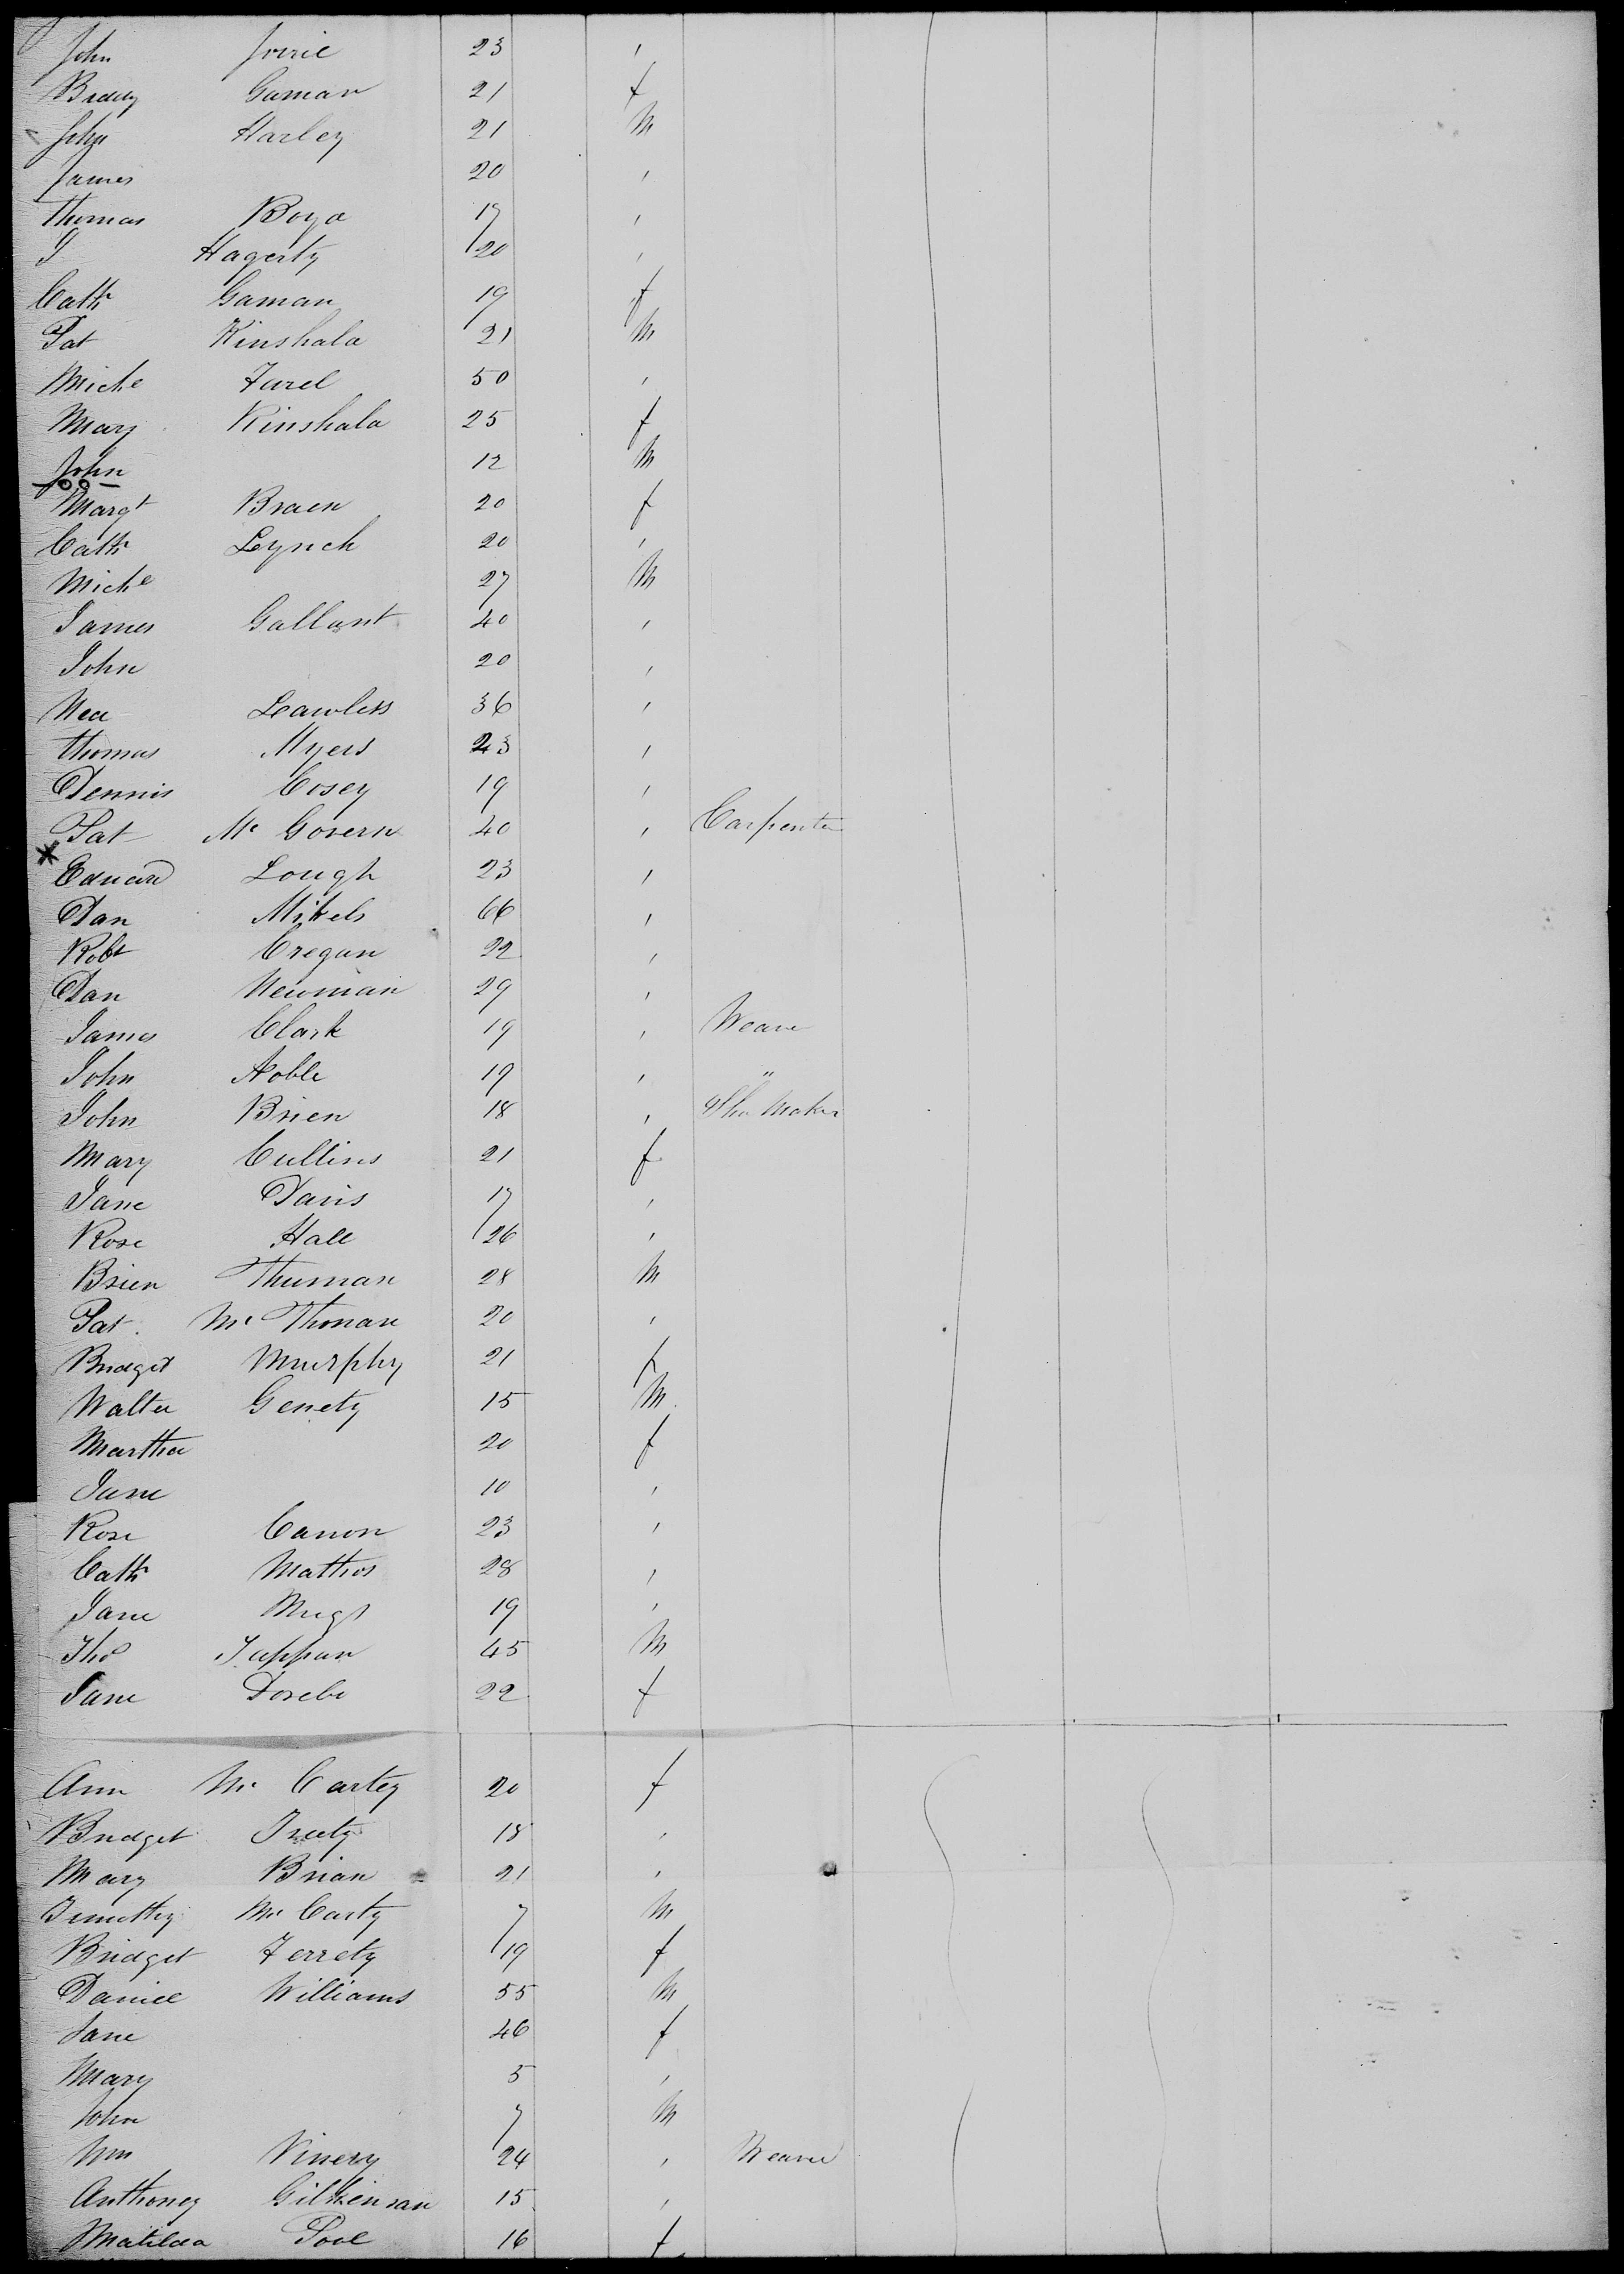 John 23 ,
Gaman 21 f
John Harley 21 M
James 20 ,
Thomas Boyd 17 ,
Hagerty 20 ,
Cath Gaman 19 f
Pat Kinshala 21 M
Miche 50 ,
Mary Kinshala 25 f
John 12 M
Margt Braen 20 f
Cath Lynch 20 ,
Miche 27 M
James Gallant 40 ,
John 20 ,
Lawless 36 ,
Thomas Myers 23 ,
Dennis Cosey 19 ,
Pat Mc Govern 40 , Carpenter
Edward Lough 23 ,
Dan 66 ,
Robt Cregan 22 ,
Dan Newman 29 ,
James Clark 19 , Weaver
John Noble 19 , "
John Brien 18 , Shoe Maker
Mary Cullins 21 f
Jane Davis 17 ,
Rose Hall 26 ,
Brien Thuman 28 M
Pat Mc Thoman 20 ,
Bridget Murphy 21 f
Walter Genety 15 M
Martha 20 f
Jane 10 ,
Rose Canon 23 ,
Cath 28 ,
Jane 19 ,
Thos Tappan 45 M
Jane 22 f
Ann Mc Cartey 20 f
Bridget 18 ,
Mary Brian 21 ,
Timothy Mc Carty 7 M
Bridget Ferrety 19 f
Daniel Williams 55 M
Jane 46 f
Mary 5 ,
John 7 M
Wm Vinery 24 , Weaver
Anthoney Gilkensan 15 ,
Matilda Pool 16 f